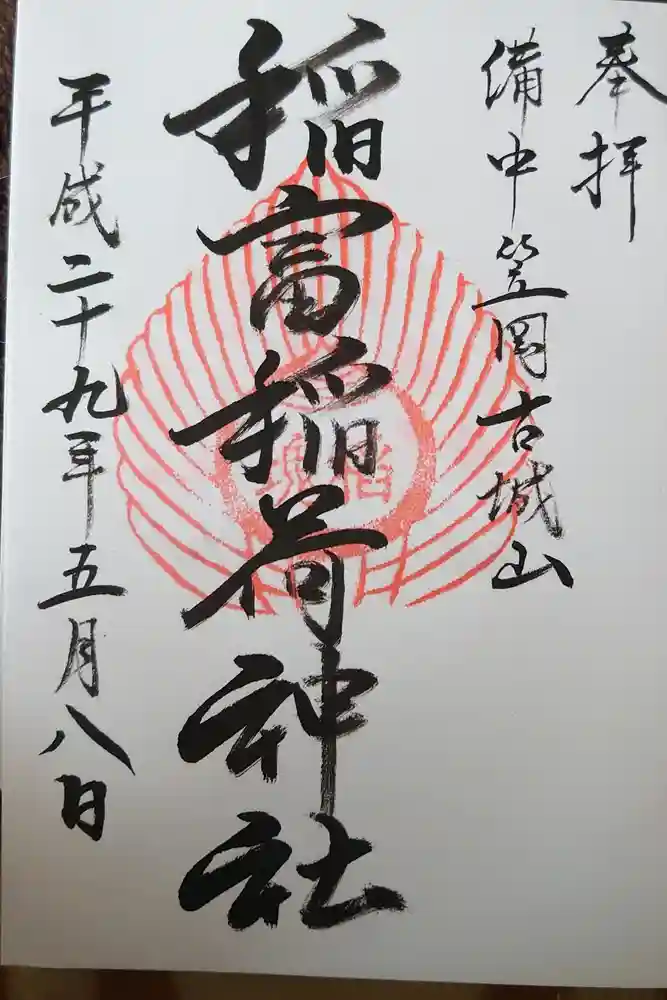 奉拝
備中笠岡古城山
稲富稲荷神社
平成二十九年五月八日